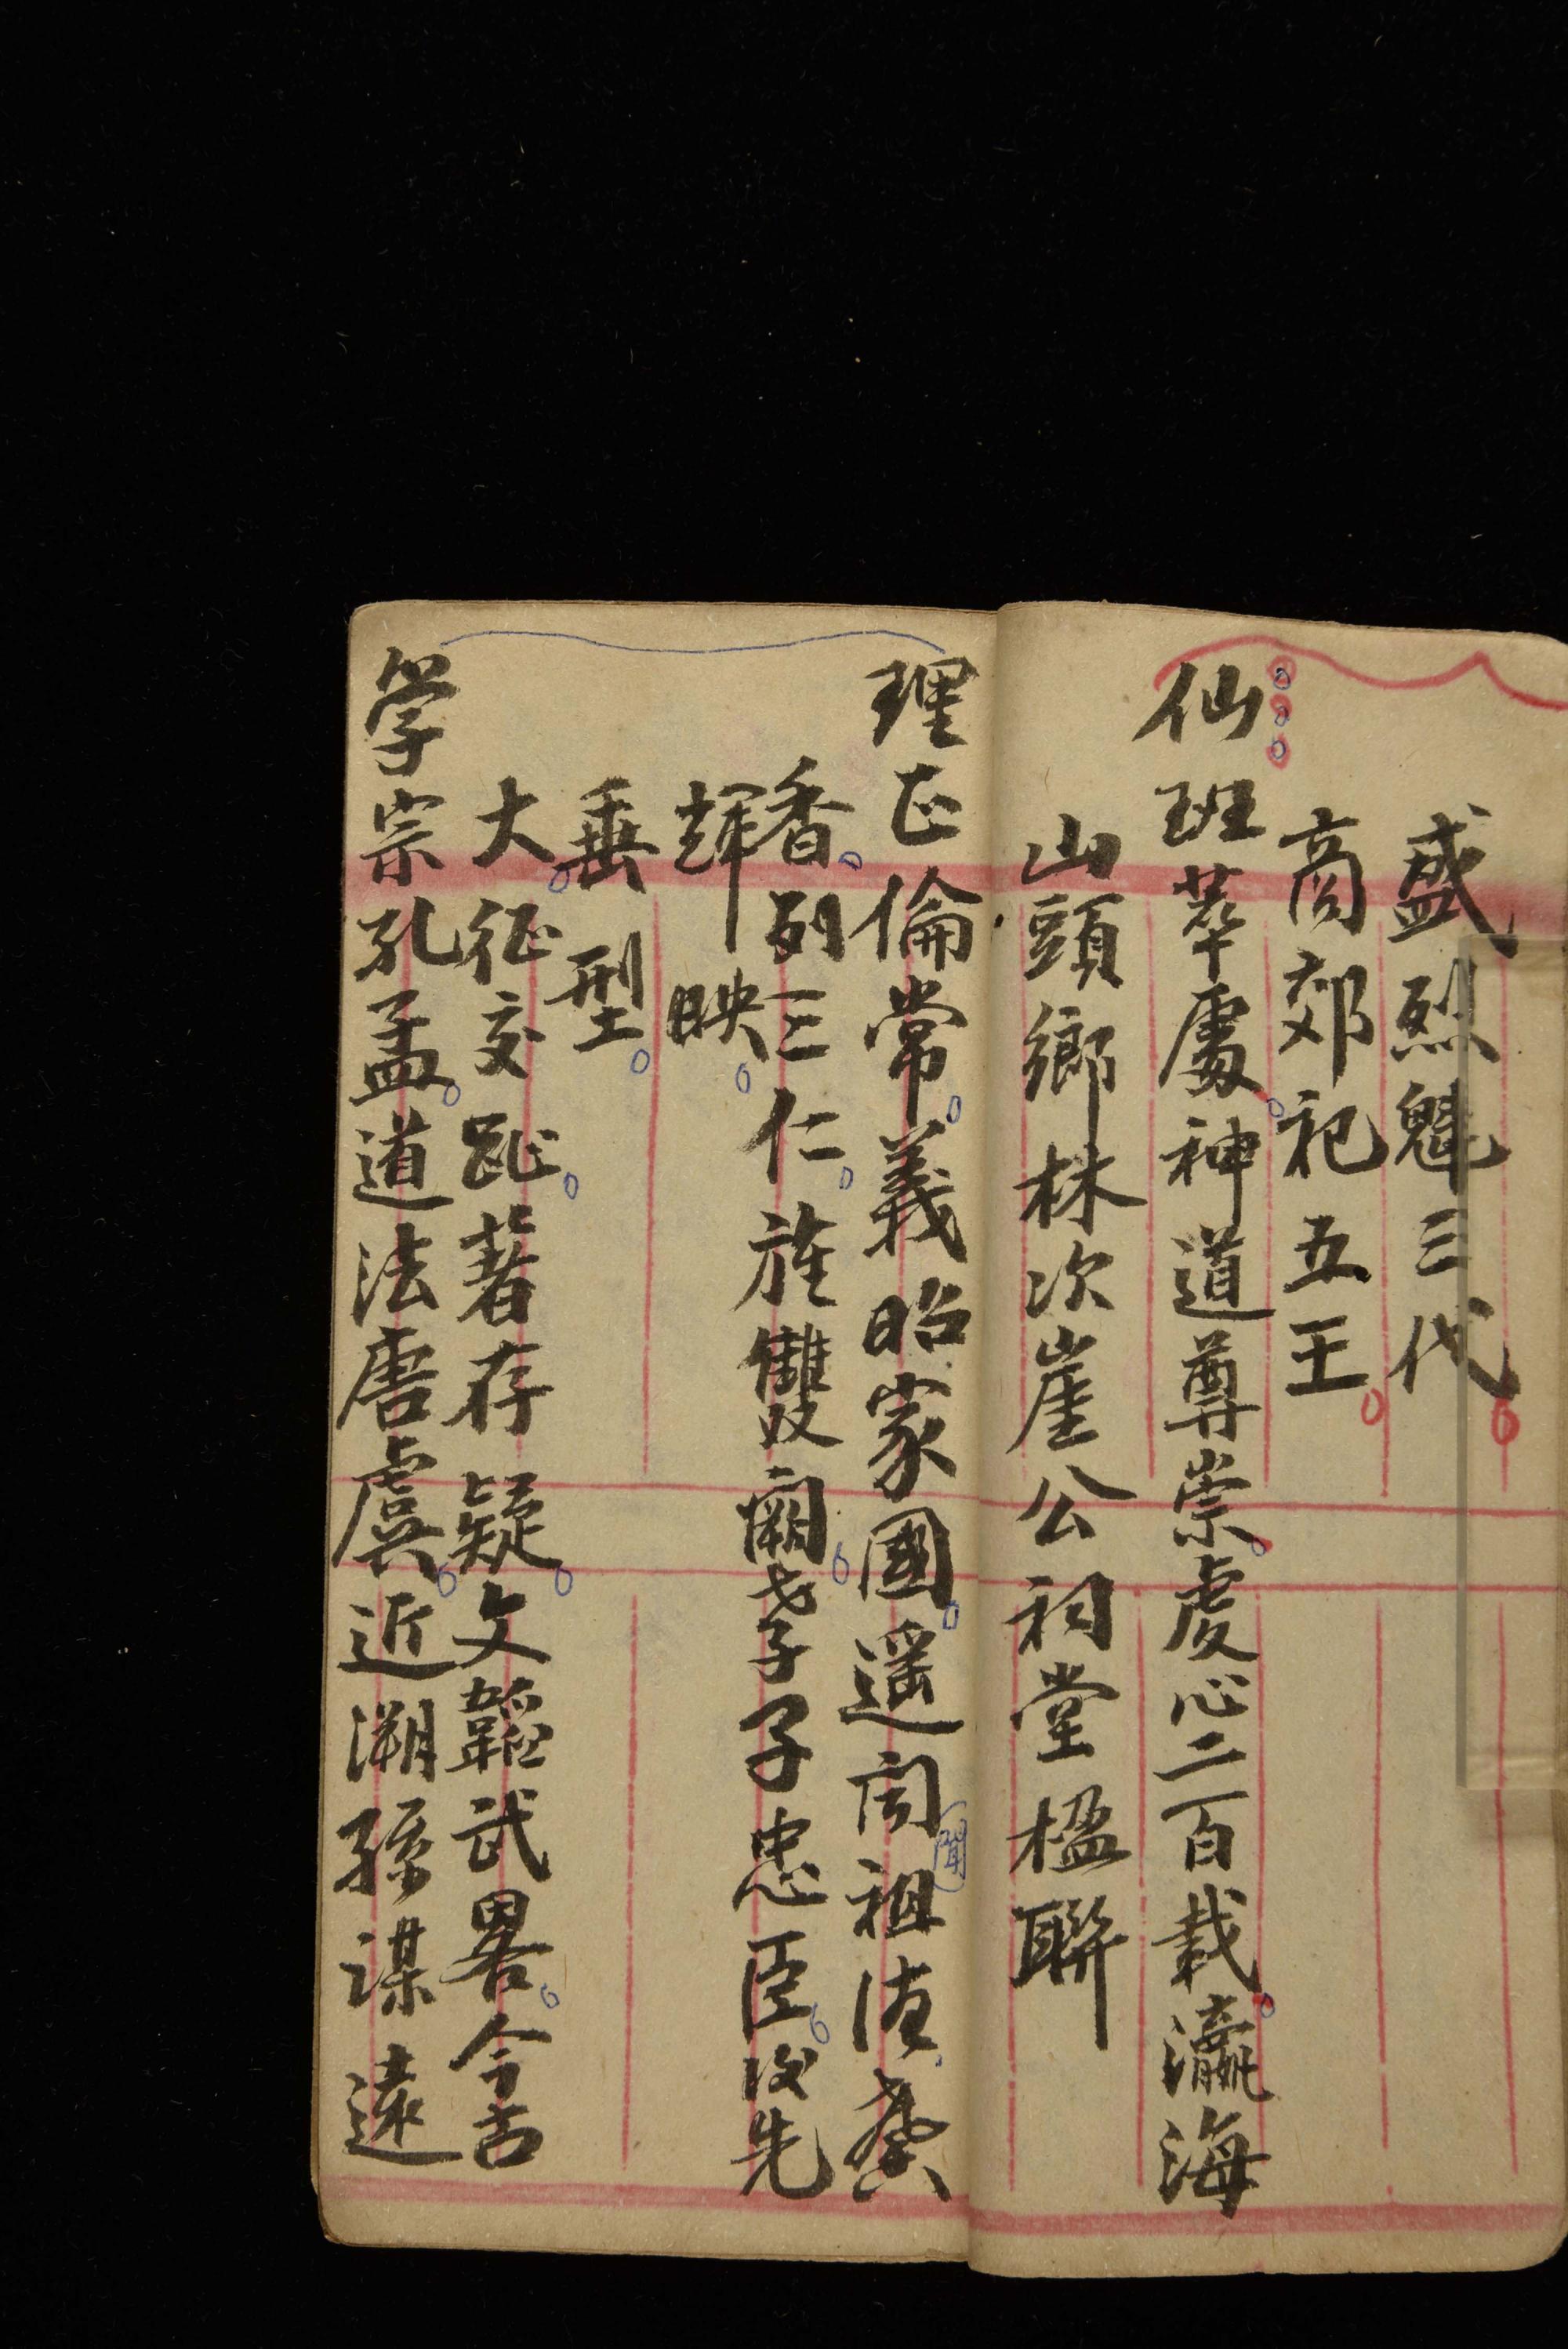 盛烈魁三代
商郊祀五王
仙班萃處神道尊崇虔心二百載瀛海
山頭鄉林次崖公祠堂楹聯
理正倫常義昭家國遥闻祖德蔡
聞
香列三仁旌雙闕孝子忠臣後先
輝映
垂型
大征交趾著存疑文韜武畧今古
學宗孔孟道法唐虞近溯孫謀遠